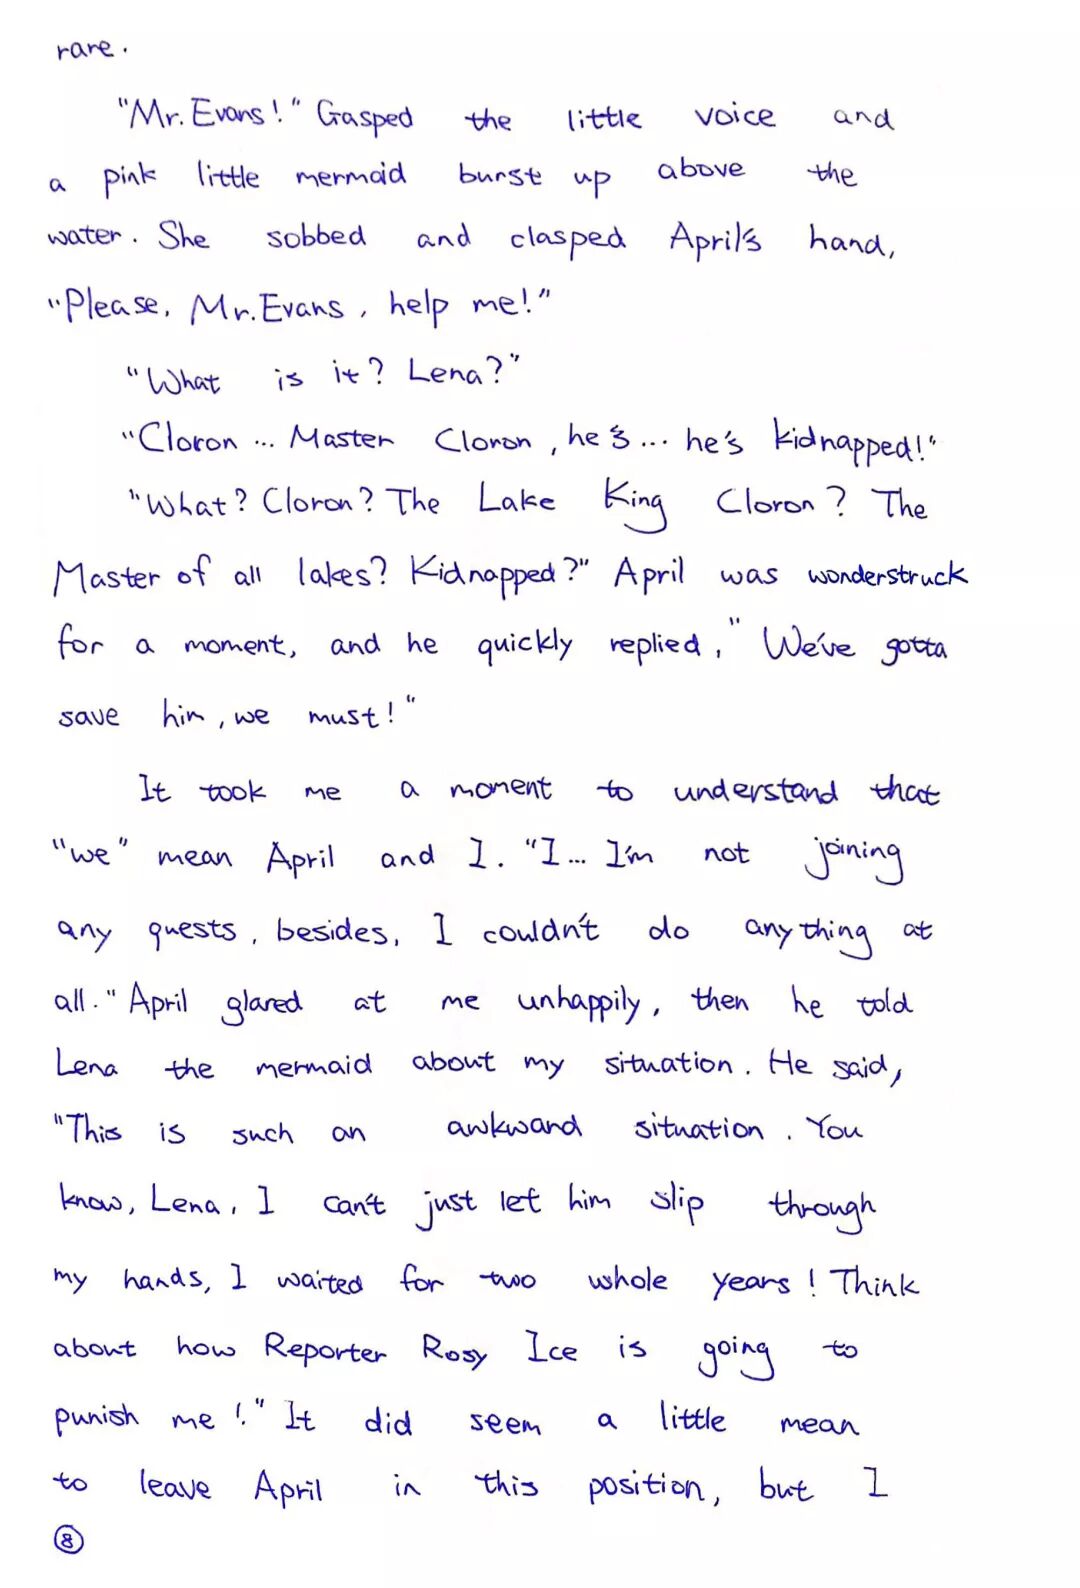 rare.
"Mr. Evans!" Gasped the little voice and
a pink little mermaid burst up above the
water. She sobbed and clasped April's hand,
"Please, Mr. Evans, help me!"
"What is it? Lena?"
"Cloron... Master Cloron, he's... he's kidnapped!"
"What? Cloron? The Lake King Cloron? The
Master of all lakes? Kidnapped?" April was wonderstruck
for a moment, and he quickly replied, "We've gotta
save him, we must!"
It took me a moment to understand that
"we" mean April and I. "I... I'm not joining
any quests, besides, I couldn't do anything at
all." April glared at me unhappily, then he told
Lena the mermaid about my situation. He said,
"This is such an awkward situation. You
know, Lena, I can't just let him slip through
my hands, I waited for two whole years! Think
about how Reporter Rosy Ice is going to
punish me!" It did seem a little mean
to leave April in this position, but I
8